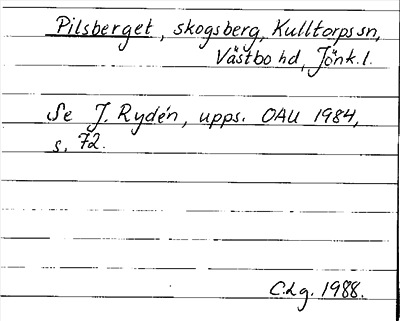 Pilsberget, skogsberg, Kulltorps sn,
Västbo hd, Jönk.l.
Se J. Rydén, upps. OAU 1984,
s. 72.
C.Lg. 1988.